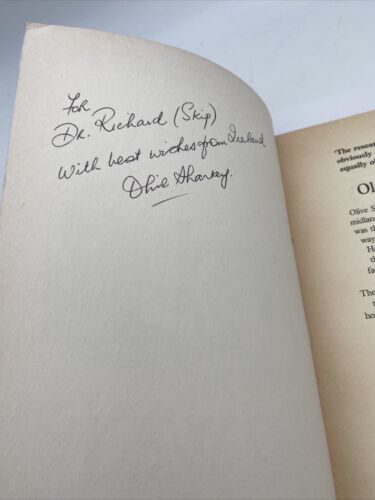 For
Dr. Richard (Skip)
With best wishes from Ireland
Olive Sharkey.
'The resea
obviously
equally o
Ol
Olive S
midlan
was th
way
He
th
fa
The
ho